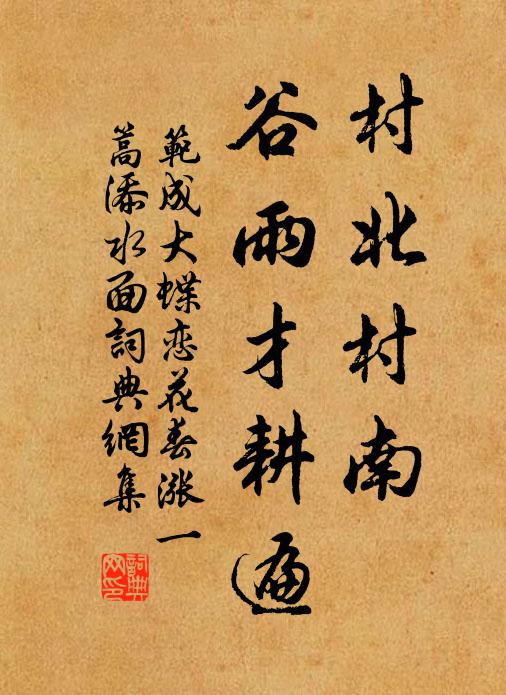 村北村南
谷雨才耕遍
範成大蝶恋花春漲一
篙添水面詞典網集
詞典
网印